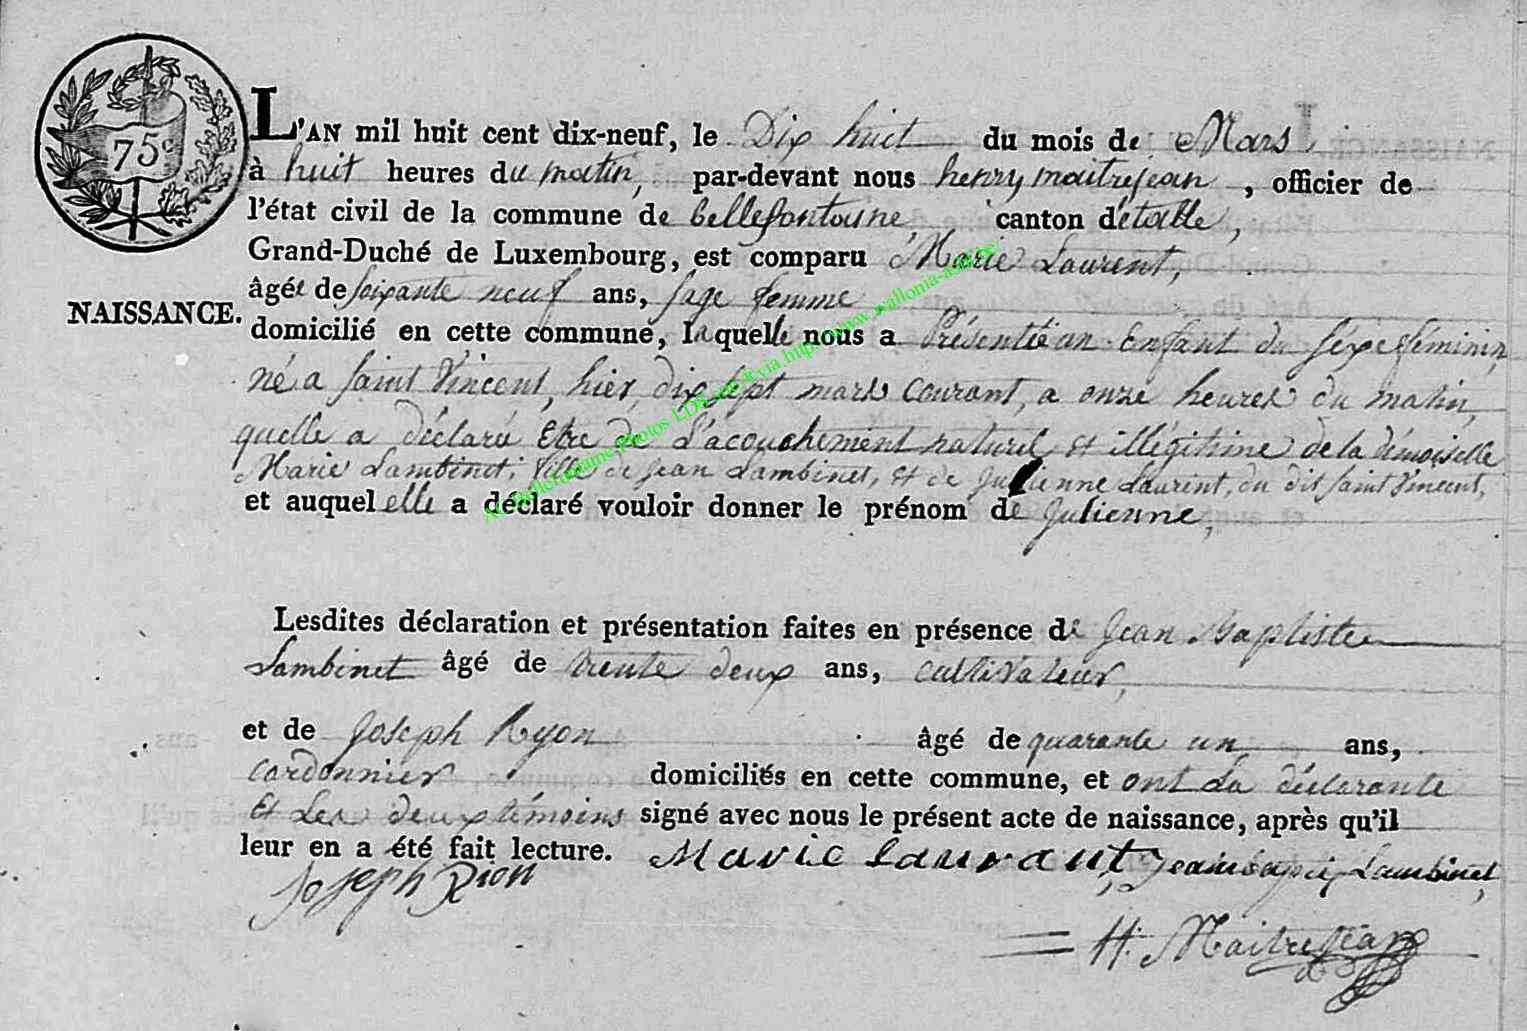 75c
L'AN mil huit cent dix-neuf, le Dix huit du mois de Mars
à huit heures du matin, par-devant nous henry maitrejean, officier de
l'état civil de la commune de bellefontaine, canton détalle,
Grand-Duché de Luxembourg, est comparu Marie Laurent,
âgée de soixante neuf ans, sage femme
NAISSANCE.
domicilié en cette commune, laquelle nous a Présenté un Enfant du séxe féminin,
né a saint Vincent, hier, dix sept mars courant, a onze heures du matin,
quelle a déclaré Etre de L'acouchement naturel et illégitime de la démoiselle
Marie Lambinet, fille de Jean Lambinet, et de Julienne Laurent, du dit saint Vincent,
et auquel elle a déclaré vouloir donner le prénom de Julienne,
Lesdites déclaration et présentation faites en présence de Jean Baptiste
Lambinet âgé de trente deux ans, cultivateur,
et de Joseph Ryon âgé de quarante un ans,
cordonnier domiciliés en cette commune, et ont La déclarante
Et Les deux témoins signé avec nous le présent acte de naissance, après qu'il
leur en a été fait lecture. Marie Laurant, Lambinet,
Joseph Rion
H. Maitrejean